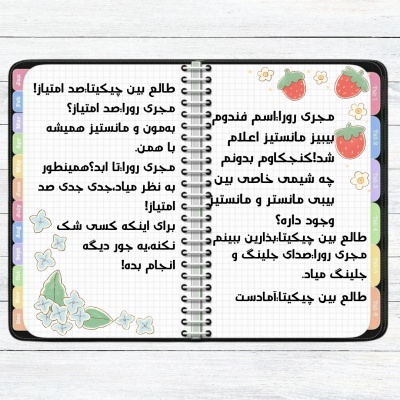 مجری رورا:اسم فندوم
بیبیز مانستیز اعلام
شد!کنجکاوم بدونم
چه شیمی خاصی بین
بیبی مانستر و مانستیز
وجود داره؟
طالع بین چیکیتا:بذارین ببینم
مجری رورا:صدای جلینگ و
جلینگ میاد.
طالع بین چیکیتا:آمادست
طالع بین چیکیتا:صد امتیاز!
مجری رورا:صد امتیاز؟
به‌مون و مانستیز همیشه
با همن.
مجری رورا:تا ابد؟همینطور
به نظر میاد،جدی جدی صد
امتیاز!
برای اینکه کسی شک
نکنه،یه جور دیگه
انجام بده!